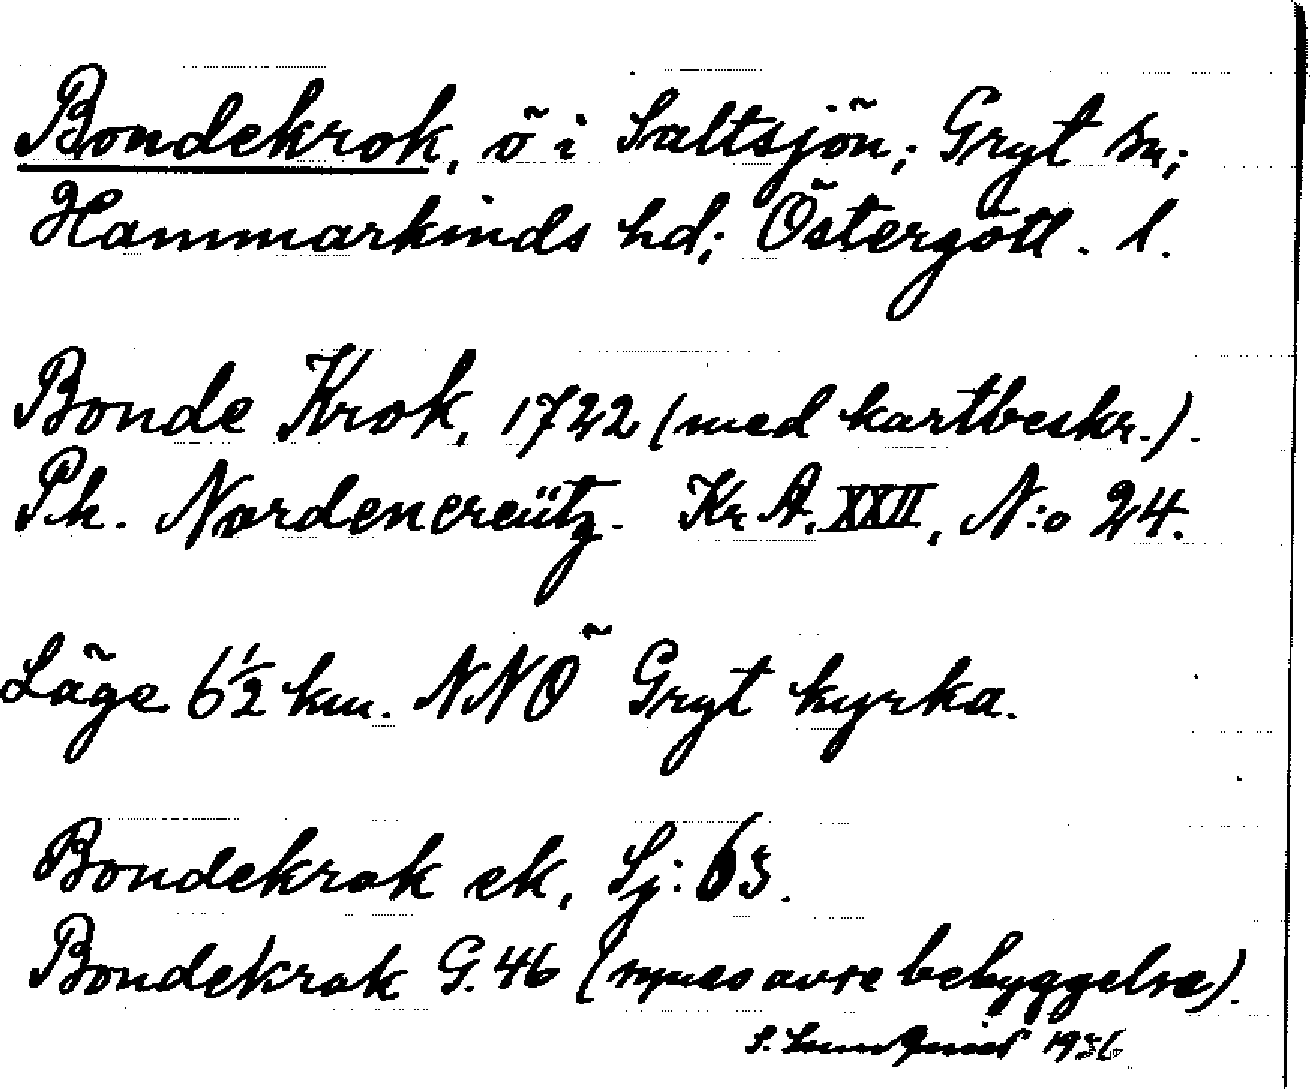 Bondekrok, ö i Saltsjön; Gryt sn;
Hammarkinds hd; Östergötl. l.
Bonde Krok, 1722 (med kartbeskr.).
Ph. Nordencreütz. Kr. A. XXII, N:o 24.
Läge 6 1/2 km. NNÖ Gryt kyrka.
Bondekrok ek, Sj: 63.
Bondekrok G. 46 (synes avse bebyggelse).
S. 1936